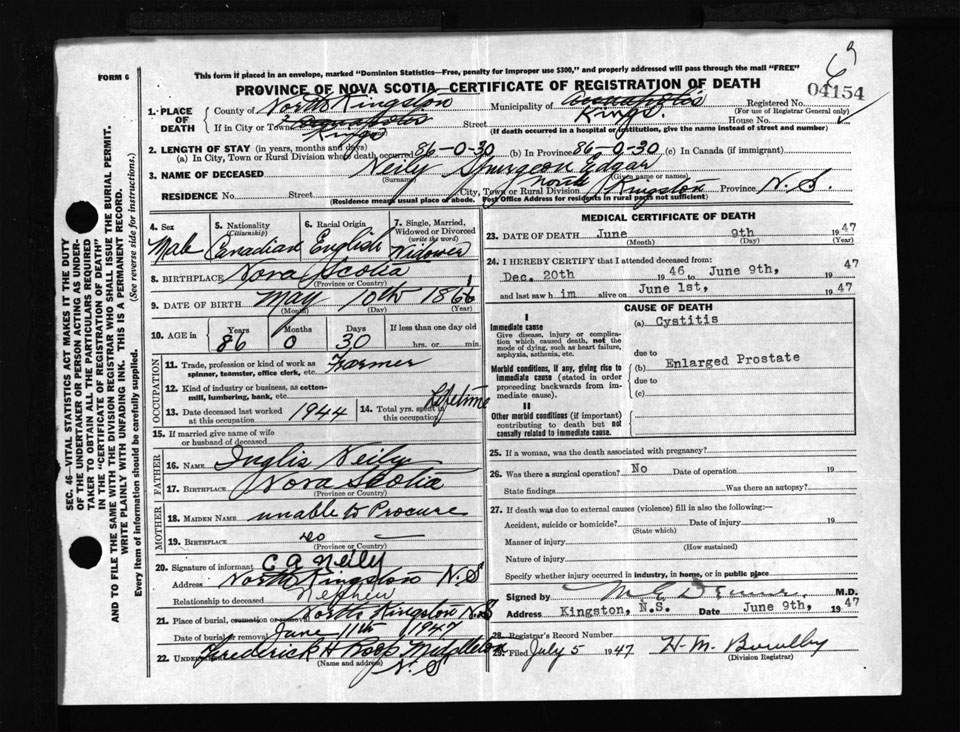 FORM 6
This form if placed in an envelope, marked "Dominion Statistics—Free, penalty for improper use $300," and properly addressed will pass through the mail "FREE"
PROVINCE OF NOVA SCOTIA CERTIFICATE OF REGISTRATION OF DEATH
04154
1. PLACE OF DEATH
County of North Kingston Municipality of Annapolis Kings. Registered No.
(For use of Registrar General only)
If in City or Town Annapolis Kings Street House No.
(If death occurred in a hospital or institution, give the name instead of street and number)
2. LENGTH OF STAY (in years, months and days)
(a) In City, Town or Rural Division where death occurred 86-0-30 (b) In Province 86-0-30 (c) In Canada (if immigrant)
3. NAME OF DECEASED Neily Spurgeon Edgar
(Surname) (Given name or names)
RESIDENCE No. Street City, Town or Rural Division North Kingston Province N.S.
(Residence means usual place of abode. Post Office Address for residents in rural parts not sufficient)
4. Sex Male
5. Nationality (Citizenship) Canadian
6. Racial Origin English
7. Single, Married, Widowed or Divorced (write the word) Widower
8. BIRTHPLACE Nova Scotia
(Province or Country)
9. DATE OF BIRTH May 10th 186
(Month) (Day) (Year)
10. AGE in Years 86 Months 0 Days 30 If less than one day old hrs. or min.
OCCUPATION
11. Trade, profession or kind of work as spinner, teamster, office clerk, etc. Farmer
12. Kind of industry or business, as cotton-mill, lumbering, bank, etc.
13. Date deceased last worked at this occupation 1944
14. Total yrs. spent in this occupation Lifetime
15. If married give name of wife or husband of deceased
FATHER
16. NAME Inglis Neily
17. BIRTHPLACE Nova Scotia
(Province or Country)
MOTHER
18. MAIDEN NAME unable to Procure
19. BIRTHPLACE do
(Province or Country)
20. Signature of informant C A Neily
Address North Kingston N.S
Relationship to deceased Nephew
21. Place of burial, cremation or removal North Kingston N.S
Date of burial or removal June 11th 1947
22. UNDERTAKER Frederick H Roop Middleton N.S
(Name and address)
MEDICAL CERTIFICATE OF DEATH
23. DATE OF DEATH June 9th 1947
(Month) (Day) (Year)
24. I HEREBY CERTIFY that I attended deceased from:
Dec. 20th 1946 to June 9th, 1947
and last saw him alive on June 1st, 1947
CAUSE OF DEATH
I
Immediate cause
Give disease, injury or complication which caused death, not the mode of dying, such as heart failure, asphyxia, asthenia, etc.
(a) Cystitis
due to
Morbid conditions, if any, giving rise to immediate cause (stated in order proceeding backwards from immediate cause).
(b) Enlarged Prostate
due to
(c)
II
Other morbid conditions (if important) contributing to death but not causally related to immediate cause.
25. If a woman, was the death associated with pregnancy?
26. Was there a surgical operation? No Date of operation 19
State findings Was there an autopsy?
27. If death was due to external causes (violence) fill in also the following:—
Accident, suicide or homicide? Date of injury 19
(State which)
Manner of injury
(How sustained)
Nature of injury
Specify whether injury occurred in industry, in home, or in public place
Signed by M.D.
Address Kingston, N.S. Date June 9th, 1947
28. Registrar's Record Number
29. Filed July 5 1947 H. M.
(Division Registrar)
SEC. 46—VITAL STATISTICS ACT MAKES IT THE DUTY
OF THE UNDERTAKER OR PERSON ACTING AS UNDER-
TAKER TO OBTAIN ALL THE PARTICULARS REQUIRED
IN THE "CERTIFICATE OF REGISTRATION OF DEATH"
AND TO FILE THE SAME WITH THE DIVISION REGISTRAR WHO SHALL ISSUE THE BURIAL PERMIT.
WRITE PLAINLY WITH UNFADING INK. THIS IS A PERMANENT RECORD.
Every item of information should be carefully supplied. (See reverse side for instructions.)